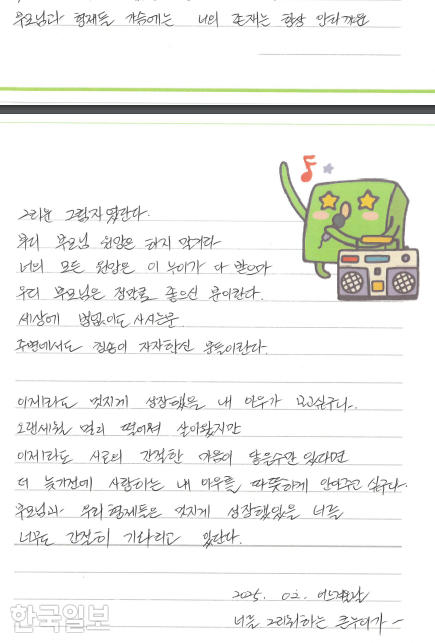 부모님과 형제들 가슴에는 너의 존재는 항상 안타까운
그리운 그림자였단다.
부디 부모님 원망은 하지 말거라
너의 모든 원망은 이 누이가 다 받으마
우리 부모님은 정말로 좋으신 분이란다.
세상에 법없이도 사시는분
주변에서도 칭송이 자자하신 분들이란다.
이제라도 멋지게 성장했을 내 아우가 보고싶구나.
오랜세월 멀리 떨어져 살아왔지만
이제라도 서로의 간절한 마음이 닿을수만 있다면
더 늦기전에 사랑하는 내 아우를 따뜻하게 안아주고 싶구나.
부모님과 우리형제들은 멋지게 성장했있을 너를
너무도 간절히 기다리고 있단다.
2025. 02. 어느겨울날
너를 그리워하는 큰누이가 -
한국일보